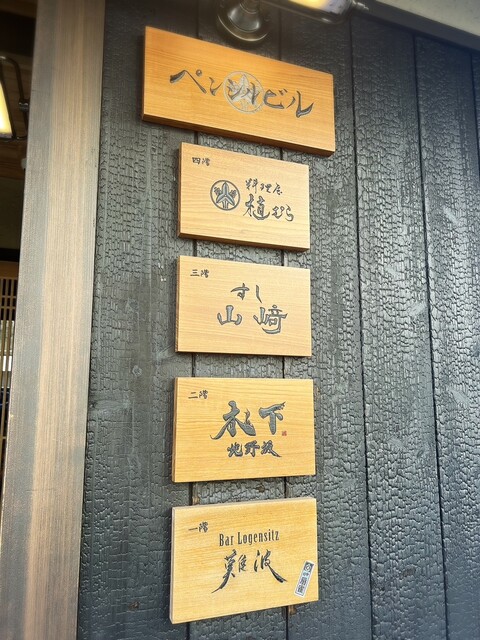 ペンシルビル
四階
料理屋
植むら
三階
すし
山﨑
二階
木下
北野坂
一階
Bar Logensitz
難波